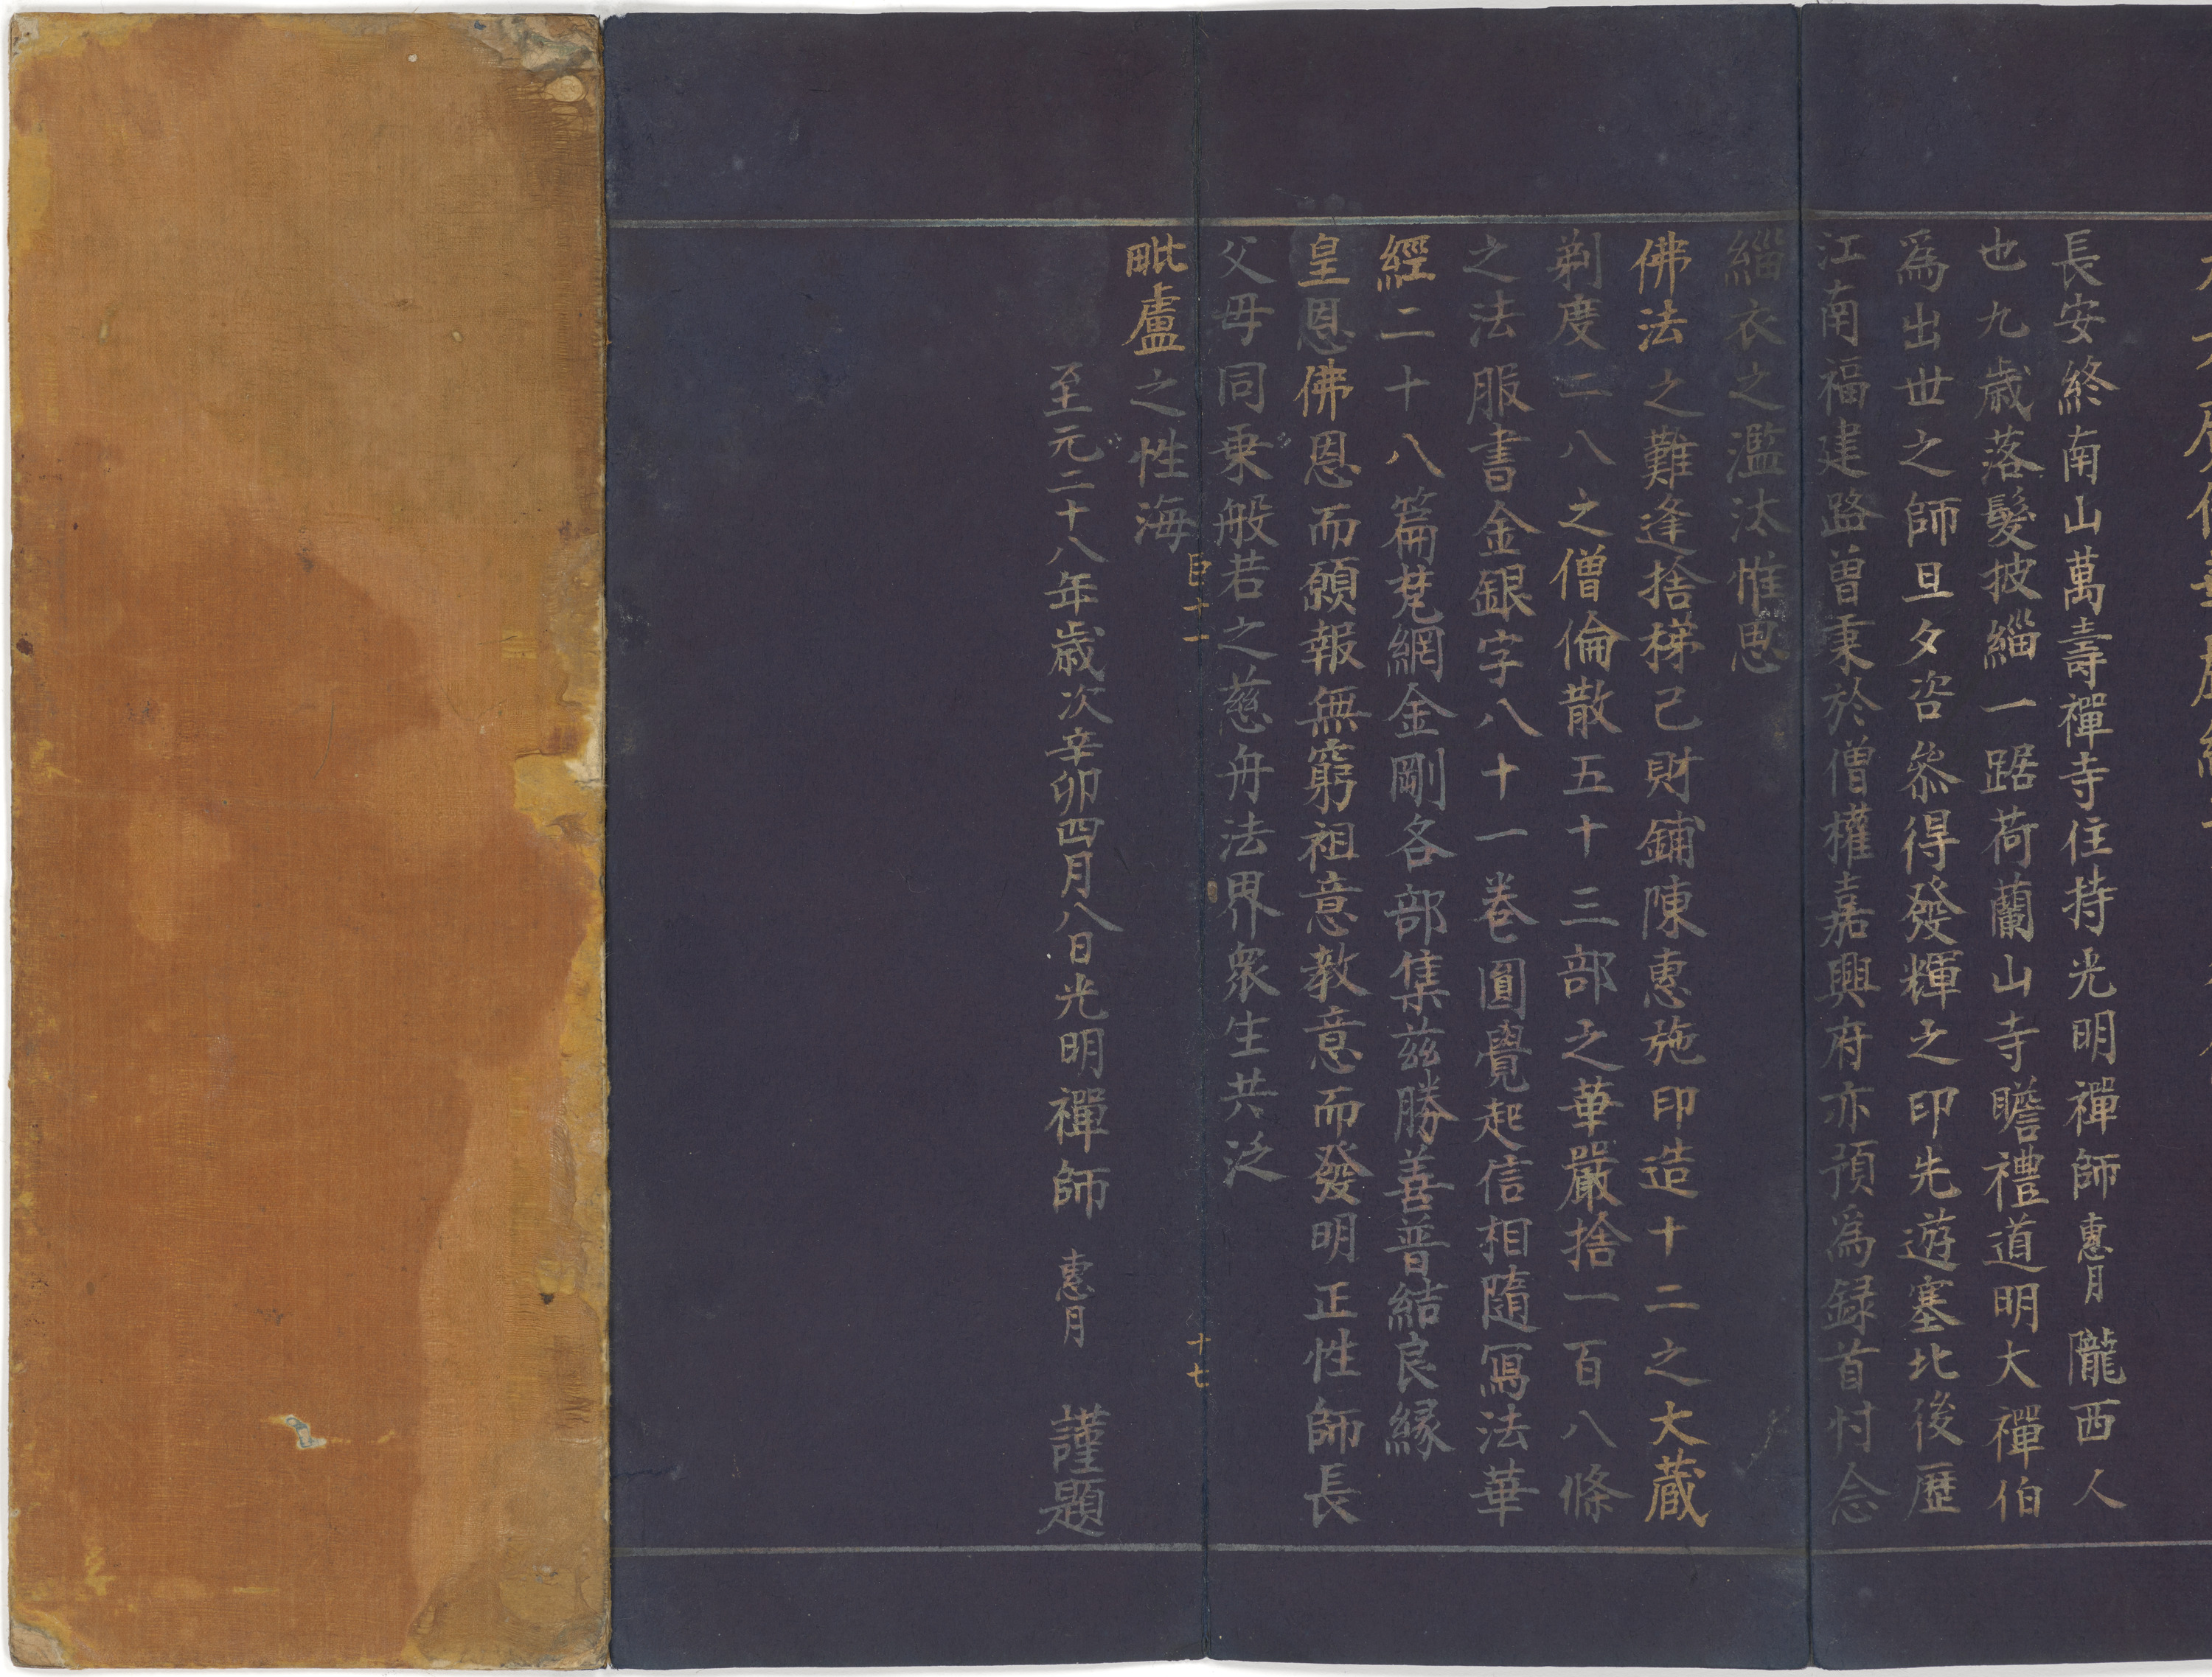 長安終南山萬壽禪寺住持光明禪師惠月隴西人
也九歲落髮披緇一踞荷蘭山寺瞻禮道明大禪伯
爲出世之師旦夕咨叅得發輝之印先遊塞北後歷
江南福建路曾秉於僧權嘉興府亦預爲録首忖念
緇衣之濫汰惟思
佛法之難逢捨梯己財鋪陳惠施印造十二之大藏
剃度二八之僧倫散五十三部之華嚴捨一百八條
之法服書金銀字八十一卷圓覺起信相隨寫法華
經二十八篇梵網金剛各部集茲勝善普結良緣
皇恩佛恩而願報無窮祖意教意而發明正性師長
父母同乗般若之慈舟法界衆生共泛
毗盧之性海
巨十一 十七
至元二十八年歲次辛卯四月八日光明禪師惠月謹題